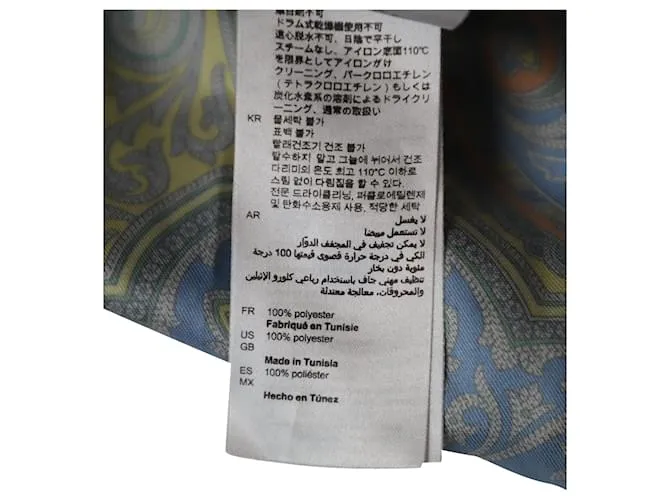 ドラム式乾燥機使用不可
遠心脱水不可、日陰で平干し
スチームなし、アイロン底面110℃
を限界としてアイロンがけ
クリーニング、パークロロエチレン
（テトラクロロエチレン）もしくは
炭化水素系の溶剤によるドライクリ
ーニング、通常の取扱い
KR 물세탁 불가
표백 불가
빨래건조기 건조 불가
탈수하지 말고 그늘에 뉘어서 건조
다리미의 온도 최고 110℃ 이하로
스팀 없이 다림질을 할 수 있다.
전문 드라이클리닝, 퍼클로에틸렌제
및 탄화수소용제 사용, 적당한 세탁
AR لا يغسل
لا تستعمل مبيضا
لا يمكن تجفيف في المجفف الدوّار
الكي في درجة حرارة قصوى قيمتها 100 درجة
مئوية دون بخار
تنظيف مهني جاف باستخدام رباعي كلورو الإثيلين
والمحروقات، معالجة معتدلة
FR 100% polyester
Fabriqué en Tunisie
US 100% polyester
GB
Made in Tunisia
ES 100% poliéster
MX
Hecho en Túnez